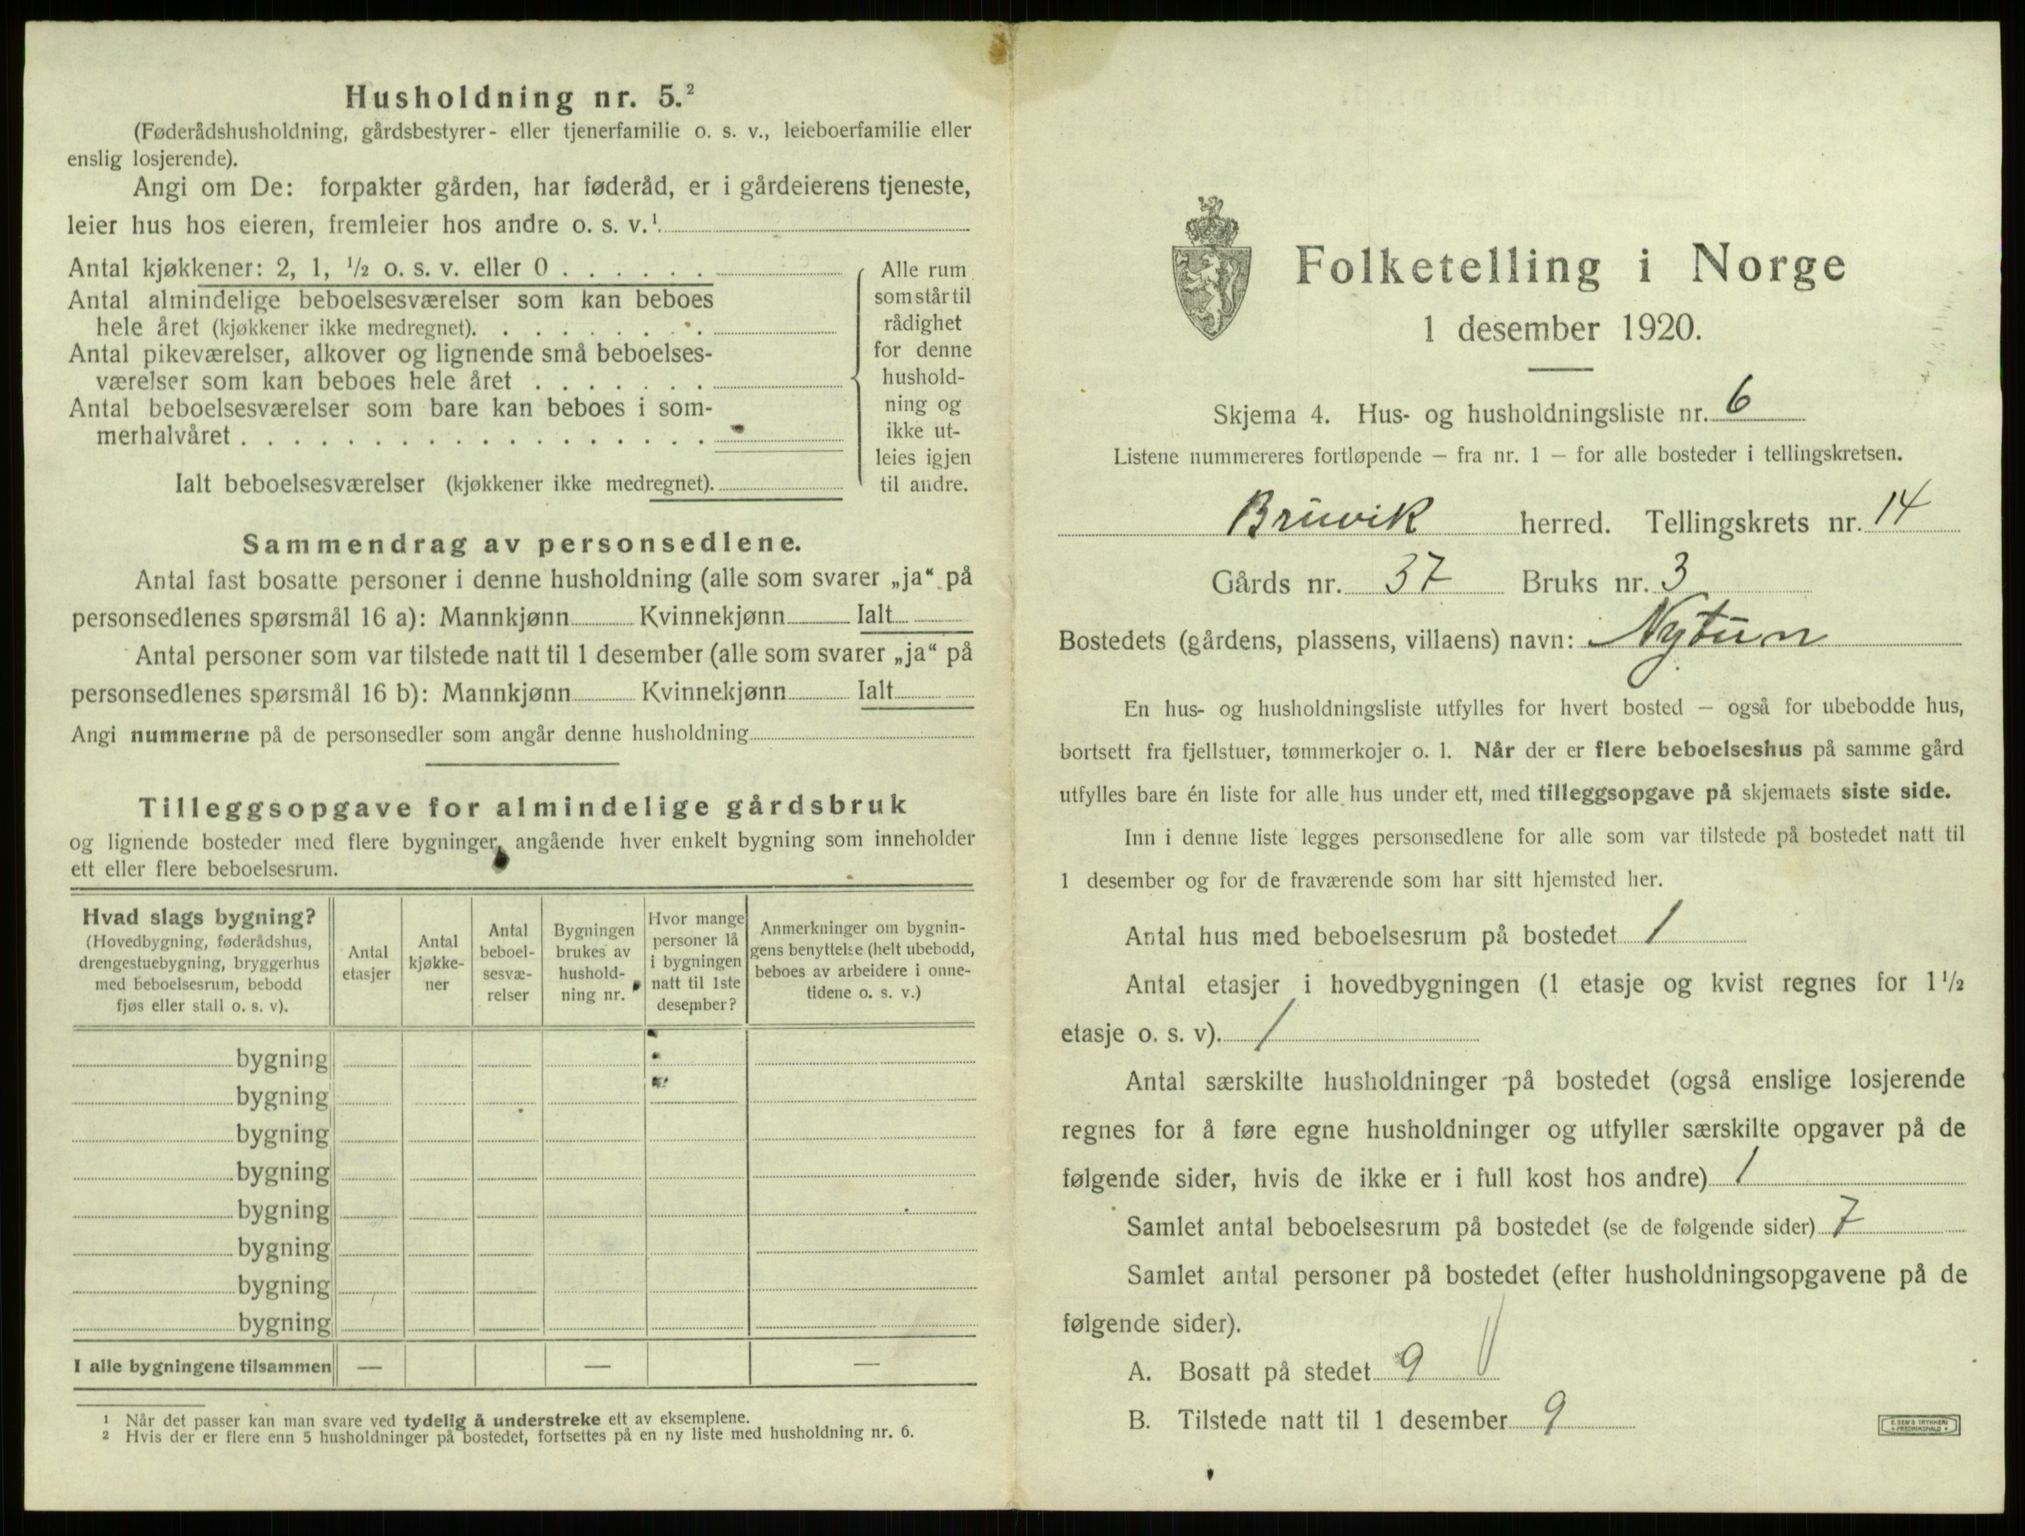 Husholdning nr. 5.²
(Føderådshusholdning, gårdsbestyrer- eller tjenerfamilie o. s. v., leieboerfamilie eller
enslig losjerende).
Angi om De: forpakter gården, har føderåd, er i gårdeierens tjeneste,
leier hus hos eieren, fremleier hos andre o. s. v.¹
Antal kjøkkener: 2, 1, ½ o. s. v. eller 0 . . . . . .
Antal almindelige beboelsesværelser som kan beboes
hele året (kjøkkener ikke medregnet). . . . . . . . .
Antal pikeværelser, alkover og lignende små beboelses-
værelser som kan beboes hele året . . . . . . .
Antal beboelsesværelser som bare kan beboes i som-
merhalvåret . . . . . . . . . . . . . . . . . .
Ialt beboelsesværelser (kjøkkener ikke medregnet).
Alle rum
som står til
rådighet
for denne
hushold-
ning og
ikke ut-
leies igjen
til andre.
Sammendrag av personsedlene.
Antal fast bosatte personer i denne husholdning (alle som svarer „ja“ på
personsedlenes spørsmål 16 a): Mannkjønn Kvinnekjønn Ialt
Antal personer som var tilstede natt til 1 desember (alle som svarer „ja“ på
personsedlenes spørsmål 16 b): Mannkjønn Kvinnekjønn Ialt
Angi nummerne på de personsedler som angår denne husholdning
Tilleggsopgave for almindelige gårdsbruk
og lignende bosteder med flere bygninger, angående hver enkelt bygning som inneholder
ett eller flere beboelsesrum.
Hvad slags bygning?
(Hovedbygning, føderådshus,
drengestuebygning, bryggerhus
med beboelsesrum, bebodd
fjøs eller stall o. s. v).
Antal
etasjer
Antal
kjøkke-
ner
Antal
beboel-
sesvæ-
relser
Bygningen
brukes av
hushold-
ning nr.
Hvor mange
personer lå
i bygningen
natt til 1ste
desember?
Anmerkninger om bygnin-
gens benyttelse (helt ubebodd,
beboes av arbeidere i onne-
tidene o. s. v.)
bygning
bygning
bygning
bygning
bygning
bygning
bygning
bygning
I alle bygningene tilsammen — — —
¹ Når det passer kan man svare ved tydelig å understreke ett av eksemplene.
² Hvis der er flere enn 5 husholdninger på bostedet, fortsettes på en ny liste med husholdning nr. 6.
Folketelling i Norge
1 desember 1920.
Skjema 4. Hus- og husholdningsliste nr. 6
Listene nummereres fortløpende — fra nr. 1 — for alle bosteder i tellingskretsen.
Bruvik herred. Tellingskrets nr. 14
Gårds nr. 37 Bruks nr. 3
Bostedets (gårdens, plassens, villaens) navn: Nytun
En hus- og husholdningsliste utfylles for hvert bosted — også for ubebodde hus,
bortsett fra fjellstuer, tømmerkojer o. l. Når der er flere beboelseshus på samme gård
utfylles bare én liste for alle hus under ett, med tilleggsopgave på skjemaets siste side.
Inn i denne liste legges personsedlene for alle som var tilstede på bostedet natt til
1 desember og for de fraværende som har sitt hjemsted her.
Antal hus med beboelsesrum på bostedet 1
Antal etasjer i hovedbygningen (1 etasje og kvist regnes for 1 ½
etasje o. s. v). 1
Antal særskilte husholdninger på bostedet (også enslige losjerende
regnes for å føre egne husholdninger og utfyller særskilte opgaver på de
følgende sider, hvis de ikke er i full kost hos andre) 1
Samlet antal beboelsesrum på bostedet (se de følgende sider) 7
Samlet antal personer på bostedet (efter husholdningsopgavene på de
følgende sider).
A. Bosatt på stedet 9
B. Tilstede natt til 1 desember 9
E. SEM'S TRYKKERI
FREDRIKSHALD